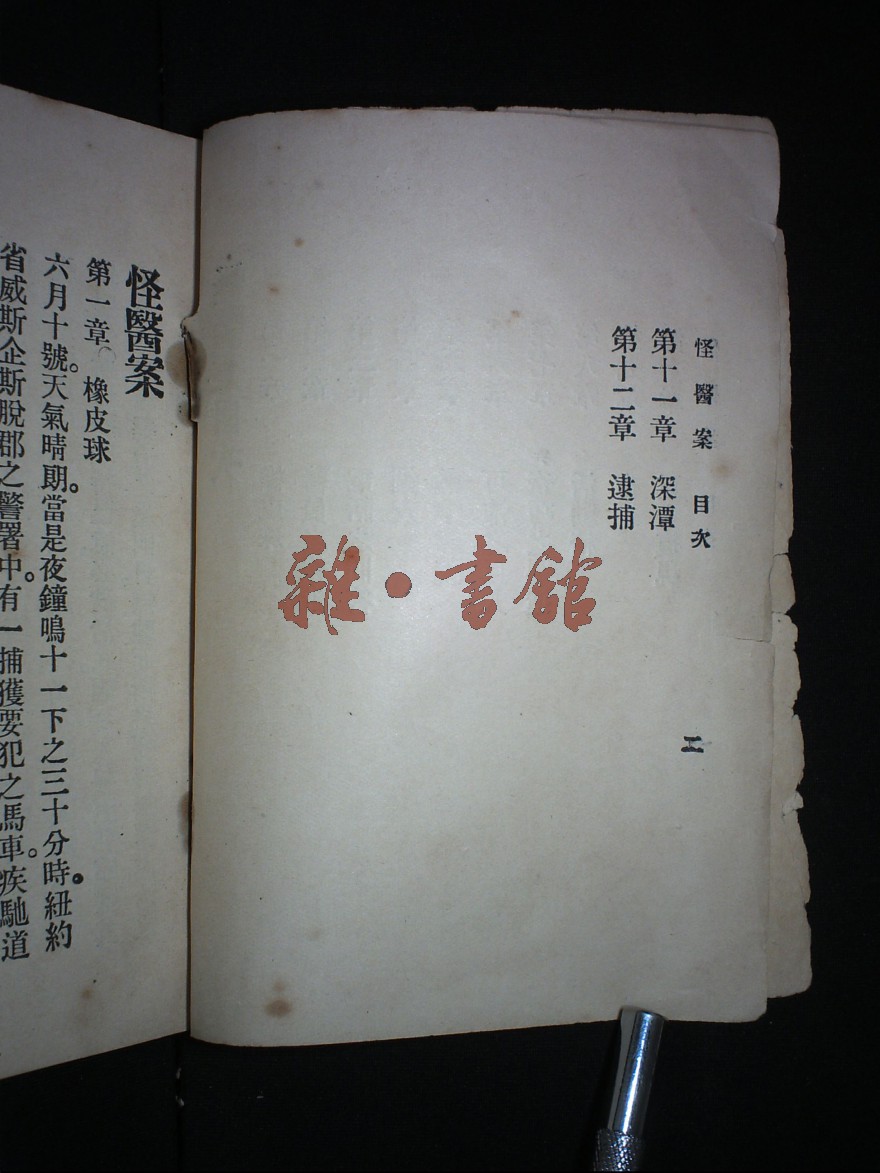 怪醫案 目次
第十一章 深潭
第十二章 逮捕
二
雜·書館
怪醫案
第一章。橡皮球
六月十號。天氣晴期。當是夜鐘鳴十一下之三十分時。紐約
省威斯企斯脫郡之警署中。有一捕獲要犯之馬車。疾馳道